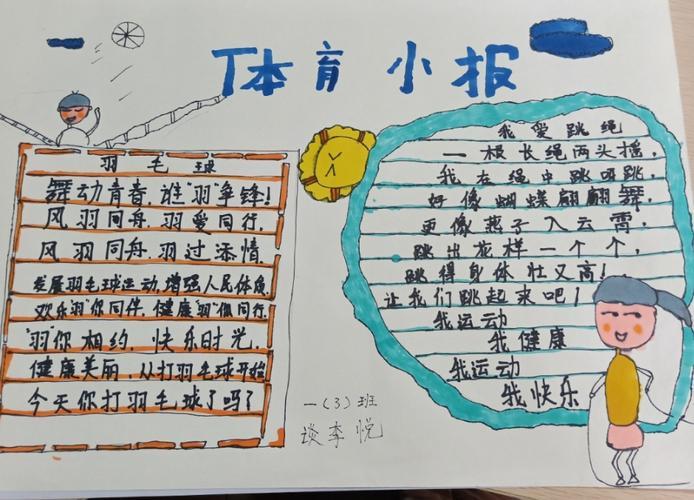 体育小报
羽毛球
舞动青春,谁"羽"争锋!
风羽同舟,羽爱同行,
风羽同舟,羽过添情
发展羽毛球运动,增强人民体质
欢乐"羽"你同伴,健康"羽"你同行,
"羽"你相约,快乐时光,
健康美丽,从打羽毛球开始
今天你打羽毛球了吗?
一(3)班
谈李悦
我爱跳绳
一根长绳两头摇,
我在绳中跳呀跳,
好像蝴蝶翩翩舞,
更像燕子入云霄,
跳出花样一个个,
跳得身体壮又高!
让我们跳起来吧!
我运动
我健康
我运动
我快乐